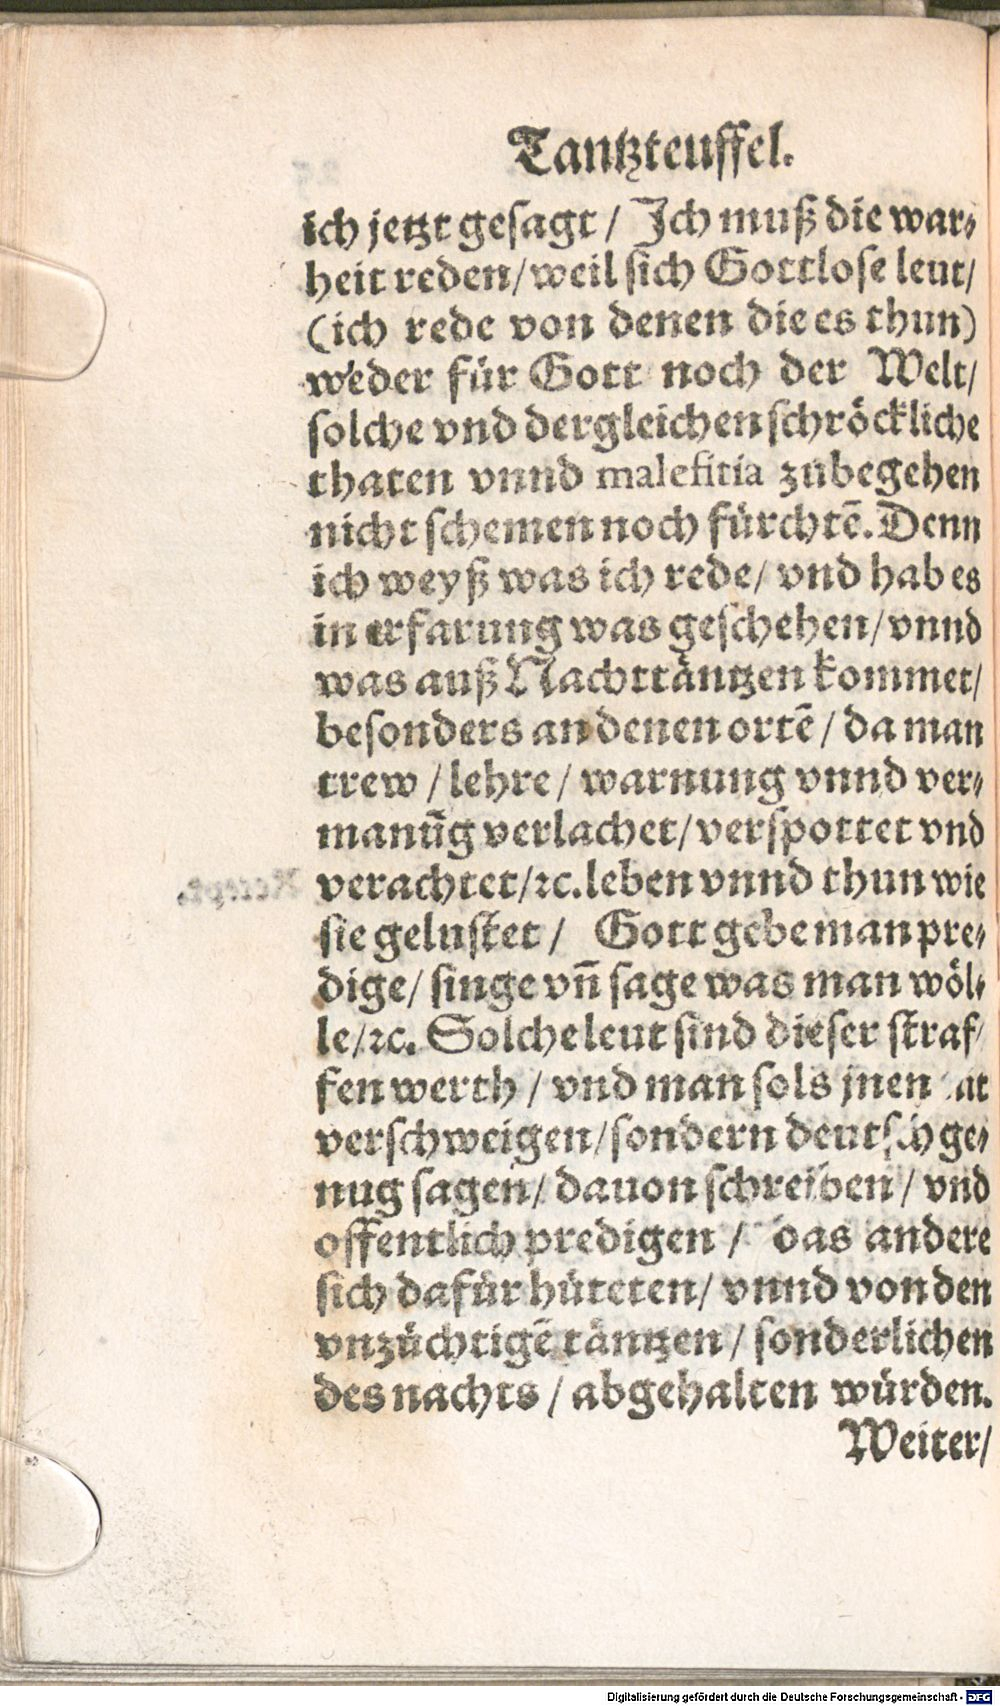 Tantzteuffel.
ich jetzt gesagt / Ich muß die war⸗
heit reden / weil sich Gottlose leut /
(ich rede von denen die es thun)
weder für Gott noch der Welt /
solche vnd dergleichen schröckliche
thaten vnnd malefitia zubegehen
nicht schemen noch fürchtē. Denn
ich weyß was ich rede / vnd hab es
in erfarung was geschehen / vnnd
was auß Nachttäntzen kommet /
besonders an denen ortē / da man
trew / lehre / warnung vnnd ver⸗
manūg verlachet / verspottet vnd
verachtet / ꝛc. leben vnnd thun wie
sie gelustet / Gott gebe man pre⸗
dige / singe vñ sage was man wöl⸗
le / ꝛc. Solche leut sind dieser straf⸗
fen werth / vnd man sols jnen
verschweigen / sondern deutsch ge⸗
nug sagen / dauon schreiben / vnd
offentlich predigen / das andere
sich dafür hüteten / vnnd von den
vnzüchtigē täntzen / sonderlichen
des nachts / abgehalten würden.
Weiter /
Digitalisierung gefördert durch die Deutsche Forschungsgemeinschaft - DFG